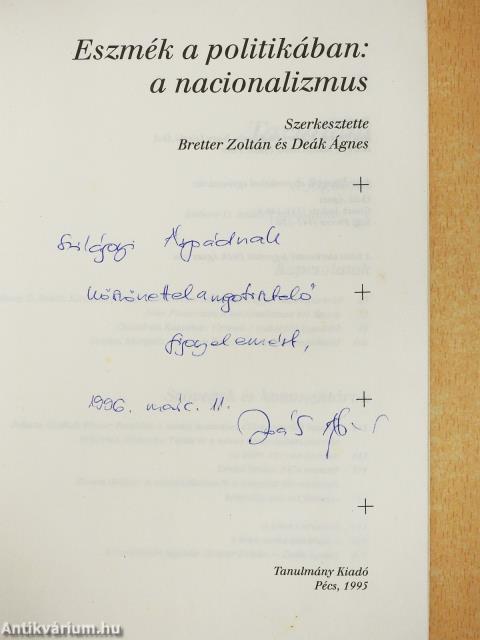 Eszmék a politikában:
a nacionalizmus
Szerkesztette
Bretter Zoltán és Deák Ágnes
Szilágyi Árpádnak
köszönettel
figyelemért,
1996. márc. 11.
Tanulmány Kiadó
Pécs, 1995
Antikvárium.hu